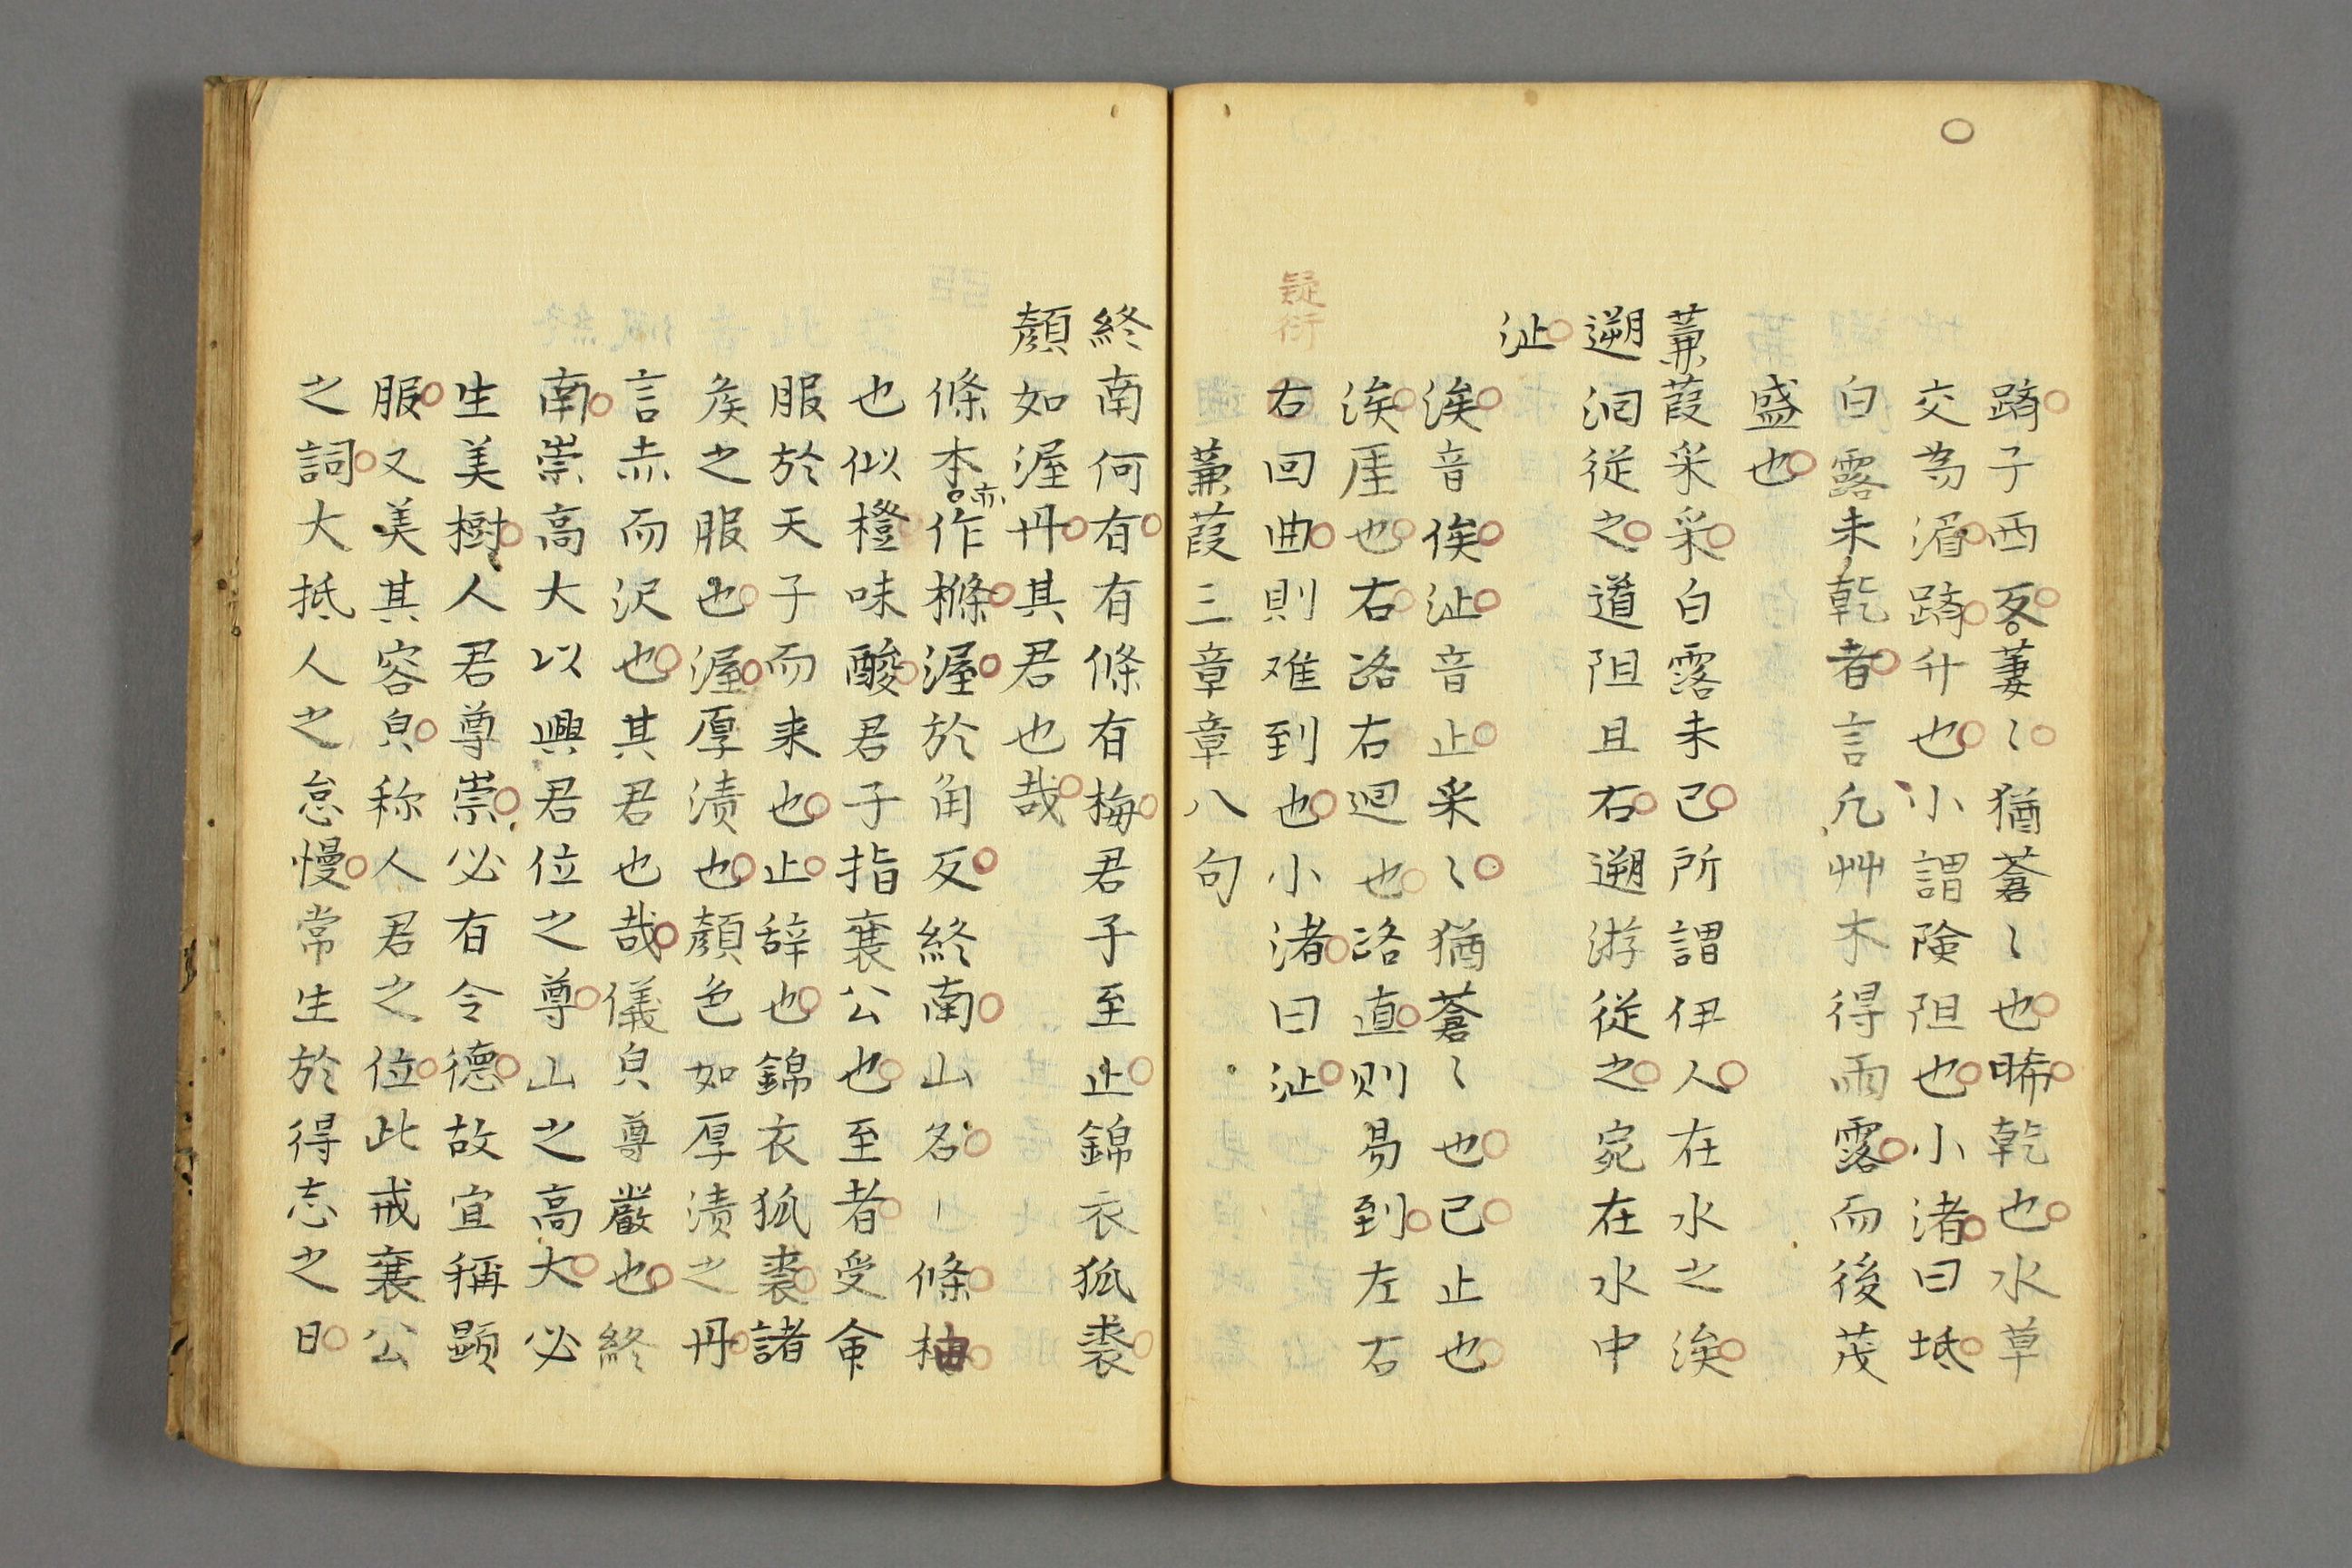 躋子西反萋〻猶蒼〻也晞乾也水草
交為湄躋升也小謂険阻也小渚曰坻
白露未乾者言凡艸木得雨露而後茂
盛也
蒹葭采采白露未已所謂伊人在水之涘
遡洄従之道阻且右遡游従之宛在水中
沚
涘音俟沚音止采〻猶蒼〻也已止也
涘厓也右路右迴也路直則易到左右
疑衍
右回曲則难到也小渚曰沚
蒹葭三章章八句
終南何有有條有梅君子至止錦衣狐裘
顏如渥丹其君也哉
條本亦作樤渥於角反終南山名 條柚
也似橙味酸君子指襄公也至者受命
服於天子而来也止辞也錦衣狐裘諸
矦之服也渥厚漬也顏色如厚漬之丹
言赤而沢也其君也哉儀皃尊嚴也終
南崇高大以興君位之尊山之高大必
生美樹人君尊崇必有令德故宜稱顕
服又美其容皃称人君之位此戒襄公
之詞大抵人之怠慢常生於得志之日